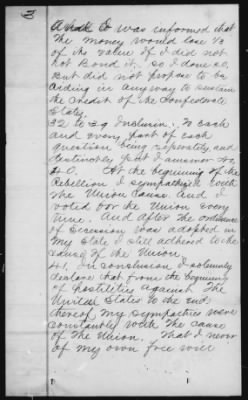 and I was informed that
the money would lose ⅓
of its value if I did not
not Bond it. so I done so.
But did not propose to be
aiding in anyway to sustain
the Credit of the Confederate
States.
32 to 39 Inclusive. To each
and every part of each
question being repeatedly and
distinctly put I answer No.
40. At the beginning of the
Rebellion I sympathized with
the Union Cause and I
voted for the Union every
time. And after the ordinance
of Secession was adopted in
my State I still adhered to the
cause of the Union.
41. In conclusion I solemnly
declare that from the beginning
of hostilities against The
United States to the end
thereof my sympathies were
constantly with the cause
of the Union. That I never
of my own free will